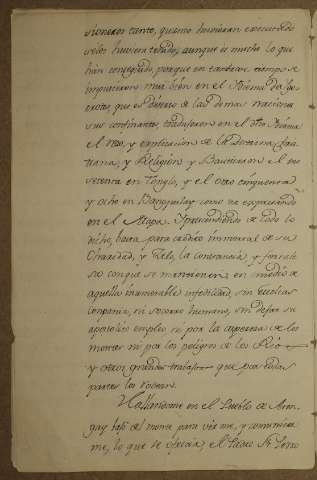 sioneros tanto, quanto huvieran executado
selos huviera tratado, aunque es mucho lo que
han conseguido, porque en tan breve tiempo se
impusieron mui bien en el Ydioma de los
, que es diverso de las demas naciones
sus confinantes, traduxeron en el dho Ydioma
el Rezo, y explicacion de la Doctrina Chris
tiana, y Religion, y Bautizaron el uno
setenta en Tonglo, y el otro cinquenta
y ocho en , como va expresado
en el Mapa. Y prescindiendo de todo lo
dicho, basta para credito inmortal de su
Charidad, y Zelo, la constancia y fortale
za con que se mantienen en medio de
aquella inumerable infidelidad, sin Escoltas
compania, ni socorro humano, sin dejar su
apostolico empleo ni por la aspereza de los
montes ni por los peligros de los Rios
y otros grandes trabajos que por todas
partes los rodean.
Hallandome en el Pueblo de Arin
gay bajó del monte para verme, y comunicar
me, lo que se ofrecia, el Padre Fr. Pedro